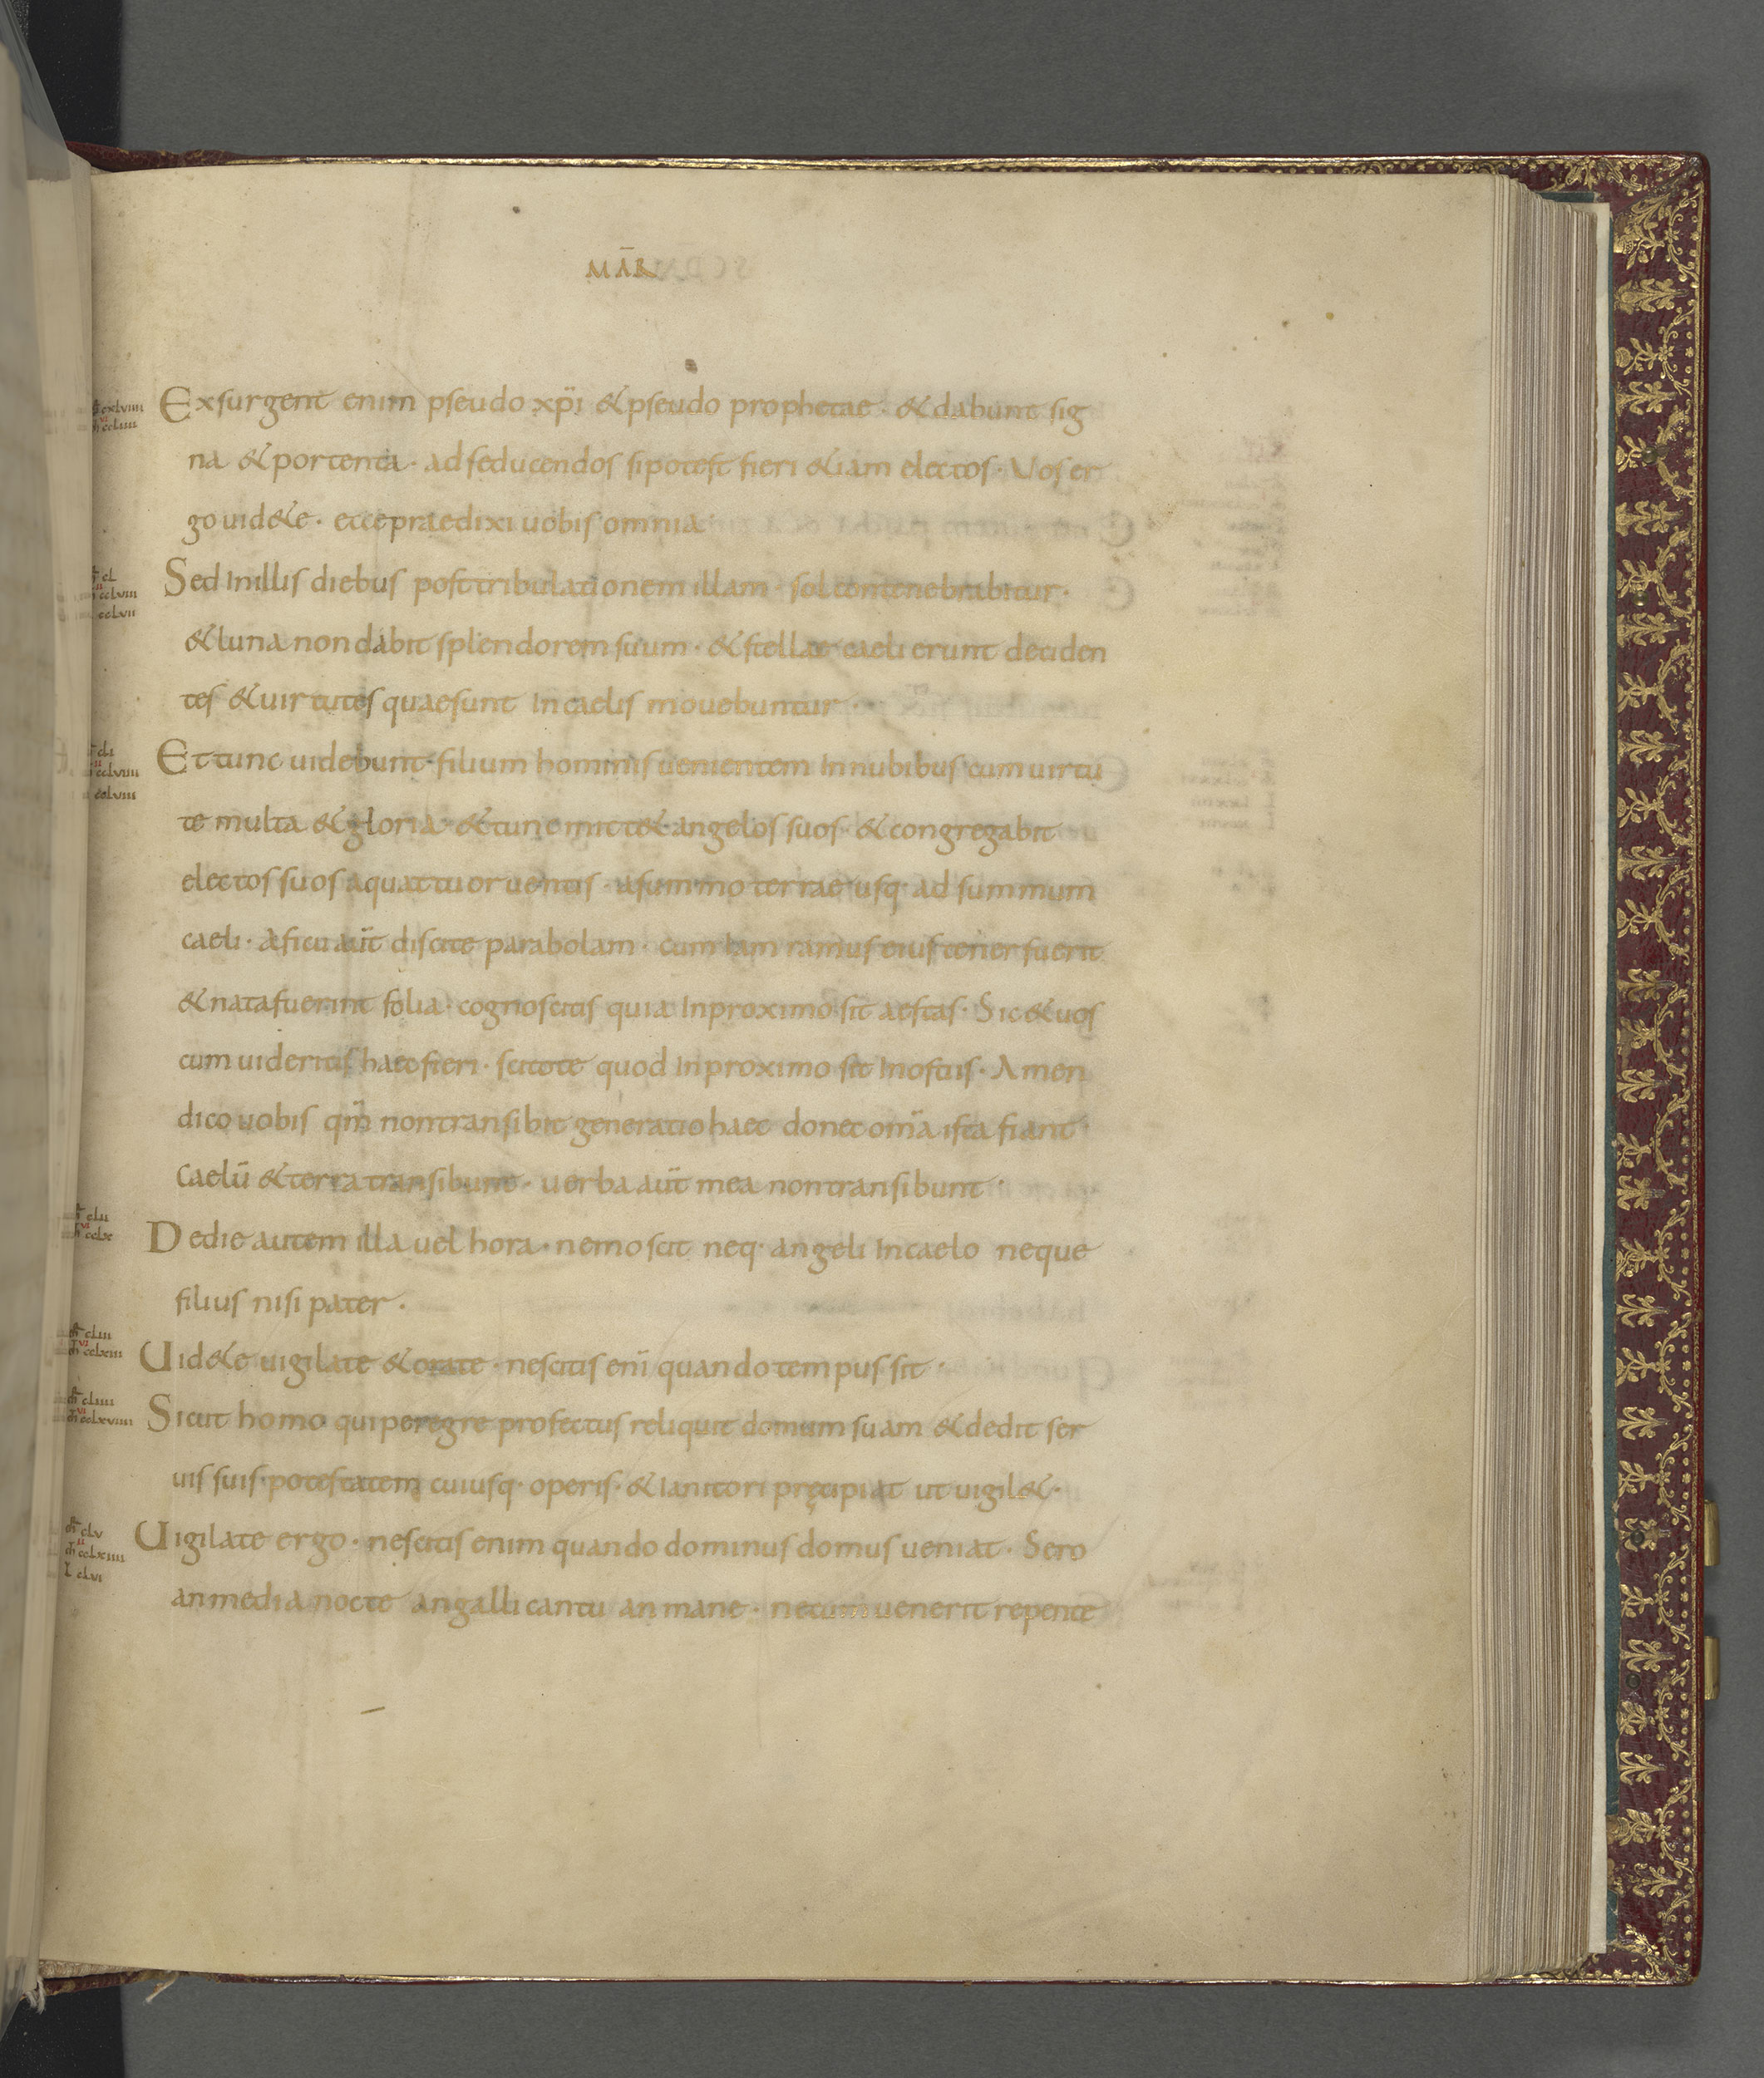 MAR̄
Exsurgent enim pseudo xp̄i & pseudo prophetae · & dabunt sig
na & portenta · ad seducendos si potest fieri &iam electos · Vos er
go uid&e · ecce praedixi uobis omnia
Sed In illis diebus post tribulationem illam · sol contenebrabitur ·
& luna non dabit splendorem suum · & stellae caeli erunt deciden
tes & uirtutes quae sunt In caelis mouebuntur ·
Et tunc uidebunt · filium hominis uenientem In nubibus cum uirtu
te multa & gloria · & tunc mitt& angelos suos · & congregabit
electos suos a quattuor uentis · a summo terrae usq· ad summum
caeli · A ficu aūt discite parabolam · cum iam ramus eius tener fuerit
& nata fuerint folia · cognoscitis quia In proximo sit aestas · Sic & uos
cum uideritis haec fieri · scitote quod In proximo sit In ostiis · Amen
dico uobis qm̄ non transibit generatio haec donec om̄a ista fiant ·
Caelū & terra transibunt · uerba aūt mea non transibunt ·
De die autem illa uel hora · nemo scit neq· angeli In caelo neque
filius nisi pater ·
Uid&e uigilate & orate · nescitis enī quando tempus sit ·
Sicut homo qui peregre profectus reliquit domum suam & dedit ser
uis suis · potestatem cuiusq· operis · & Ianitori pręcipiat ut uigil& ·
Uigilate ergo · nescitis enim quando dominus domus ueniat · Sero
an media nocte an galli cantu an mane · ne cum uenerit repente